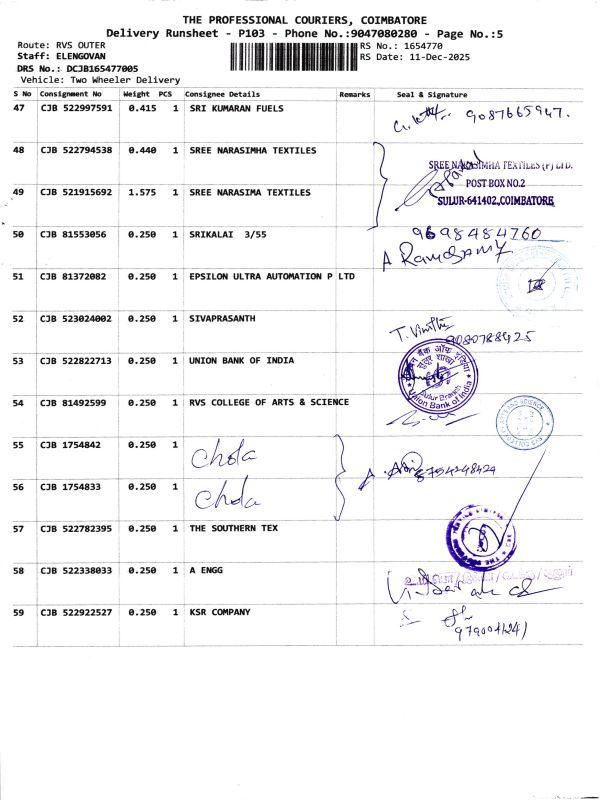 THE PROFESSIONAL COURIERS, COIMBATORE
Delivery Runsheet - P103 - Phone No.:9047080280 - Page No.:5
Route: RVS OUTER RS No.: 1654770
Staff: ELENGOVAN RS Date: 11-Dec-2025
DRS No.: DCJB165477005
Vehicle: Two Wheeler Delivery
S No Consignment No Weight PCS Consignee Details Remarks Seal & Signature
47 CJB 522997591 0.415 1 SRI KUMARAN FUELS 9087665947.
48 CJB 522794538 0.440 1 SREE NARASIMHA TEXTILES
SREE NARASIMHA TEXTILES (P) LTD.
POST BOX NO.2
49 CJB 521915692 1.575 1 SREE NARASIMA TEXTILES
SULUR-641402, COIMBATORE
50 CJB 81553056 0.250 1 SRIKALAI 3/55 9698484760
A Ramasamy
51 CJB 81372082 0.250 1 EPSILON ULTRA AUTOMATION P LTD
52 CJB 523024002 0.250 1 SIVAPRASANTH
9080788925
53 CJB 522822713 0.250 1 UNION BANK OF INDIA
Sulur Branch
Union Bank of India
54 CJB 81492599 0.250 1 RVS COLLEGE OF ARTS & SCIENCE
55 CJB 1754842 0.250 1 Chola
8754248424
56 CJB 1754833 0.250 1 Chola
57 CJB 522782395 0.250 1 THE SOUTHERN TEX
58 CJB 522338033 0.250 1 A ENGG
59 CJB 522922527 0.250 1 KSR COMPANY